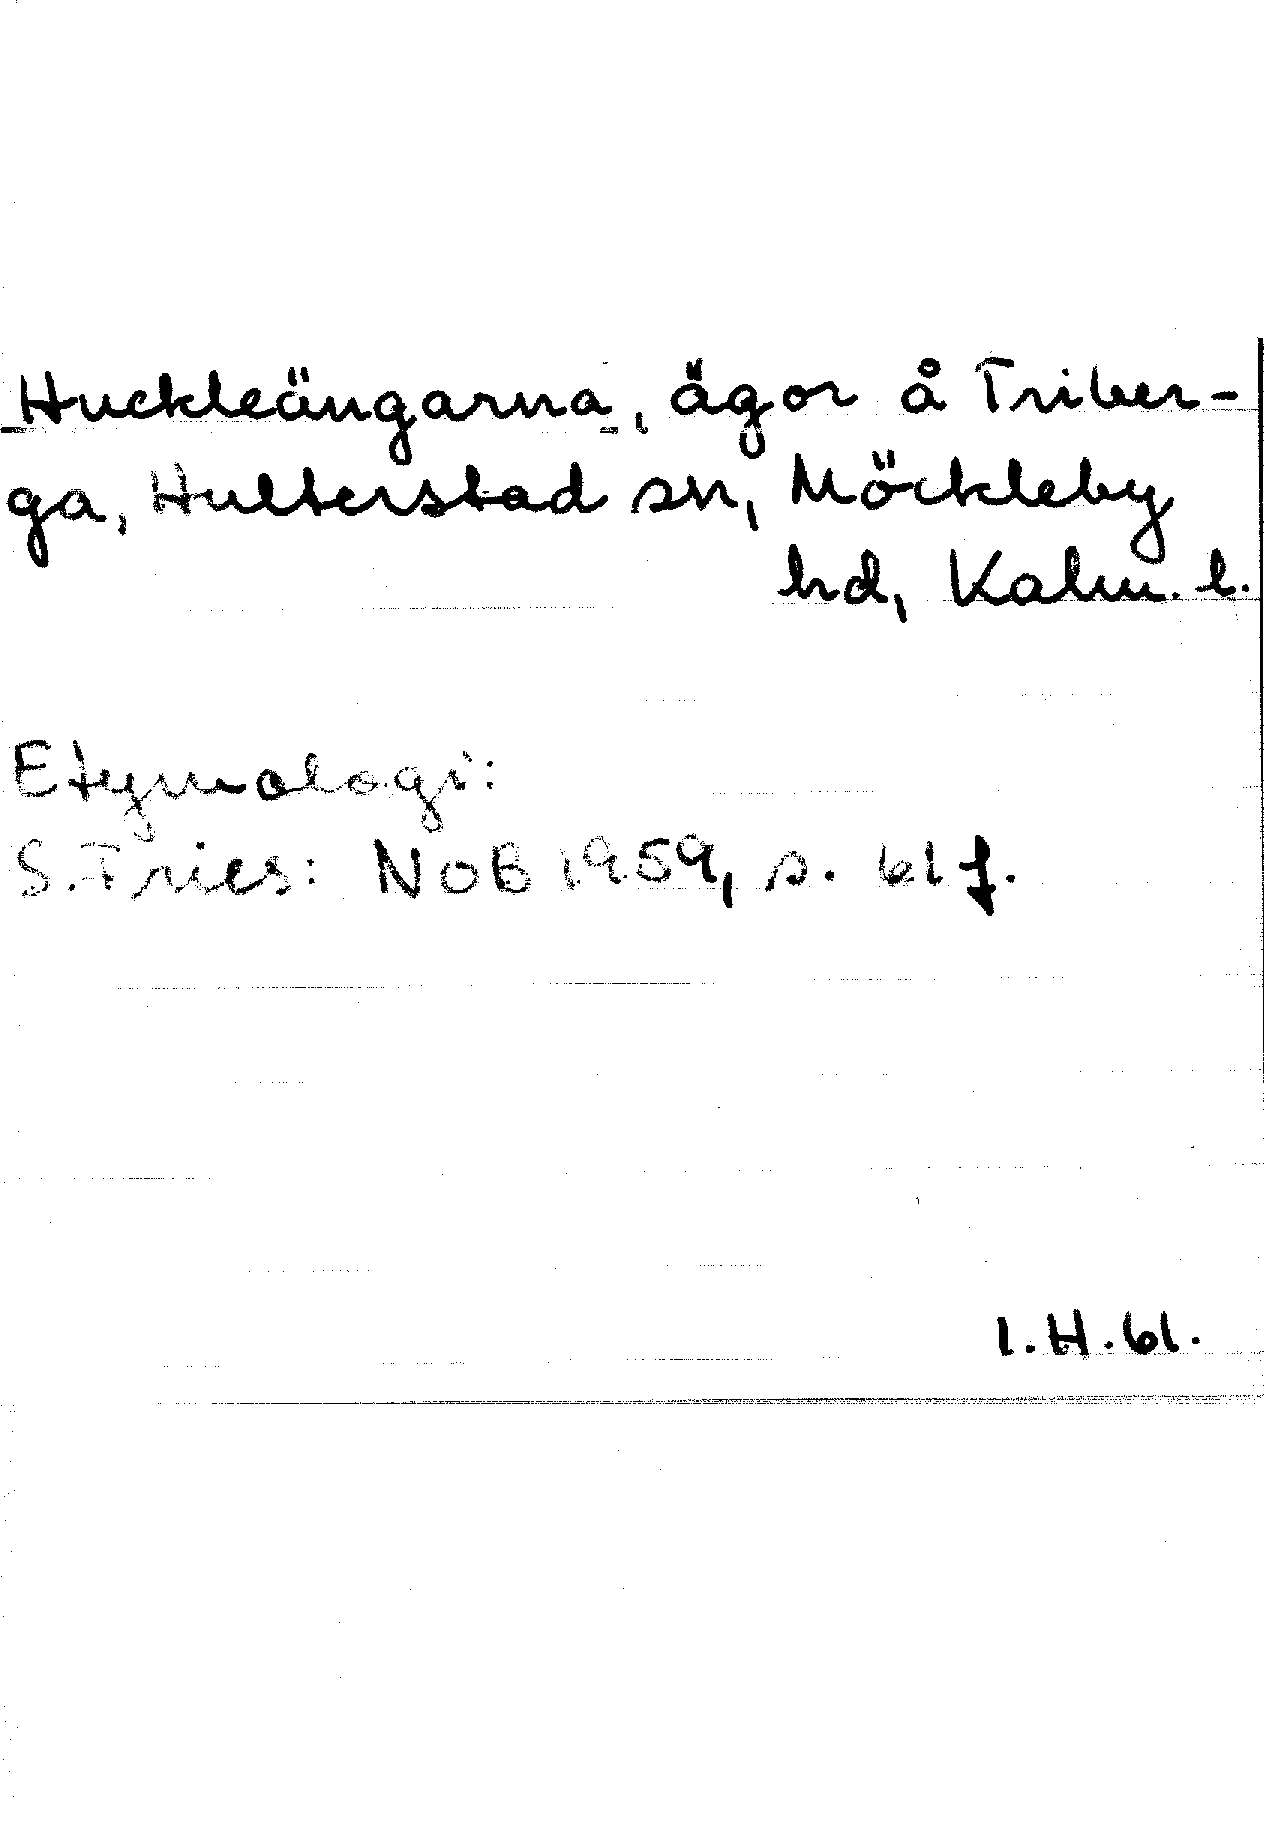 Huckleängarna, ägor å Triber-
ga, Hulterstad sn, Möckleby
hd, Kalm. l.
Etymologi:
S. Fries: NOB 1959, s. 61 f.
I. H. 61.